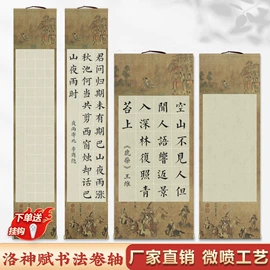 君问归期未有期巴山夜雨涨
秋池何当共剪西窗烛却话巴
山夜雨时
夜雨寄北 李商隐
空山不见人但
闻人语響返景
入深林復照青
苔上
《鹿柴》王维
下单送
挂钩
洛神赋书法卷轴
厂家直销 微喷工艺